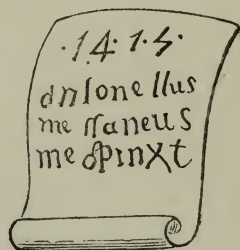 ·1·4·1·5·
dnſone llus
me ſſaneus
me dpinxt